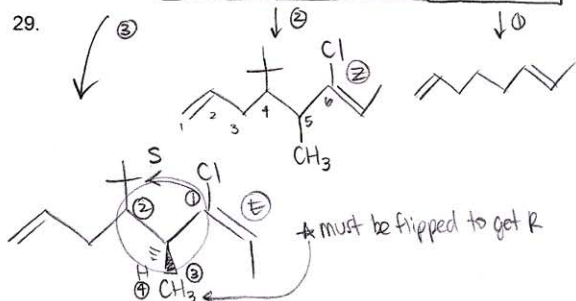 29.
③ ② ①
Cl
Z
1 2 3 4 5 6
CH₃
S
Cl
② ① E
H
④ CH₃ ③
☆ must be flipped to get R